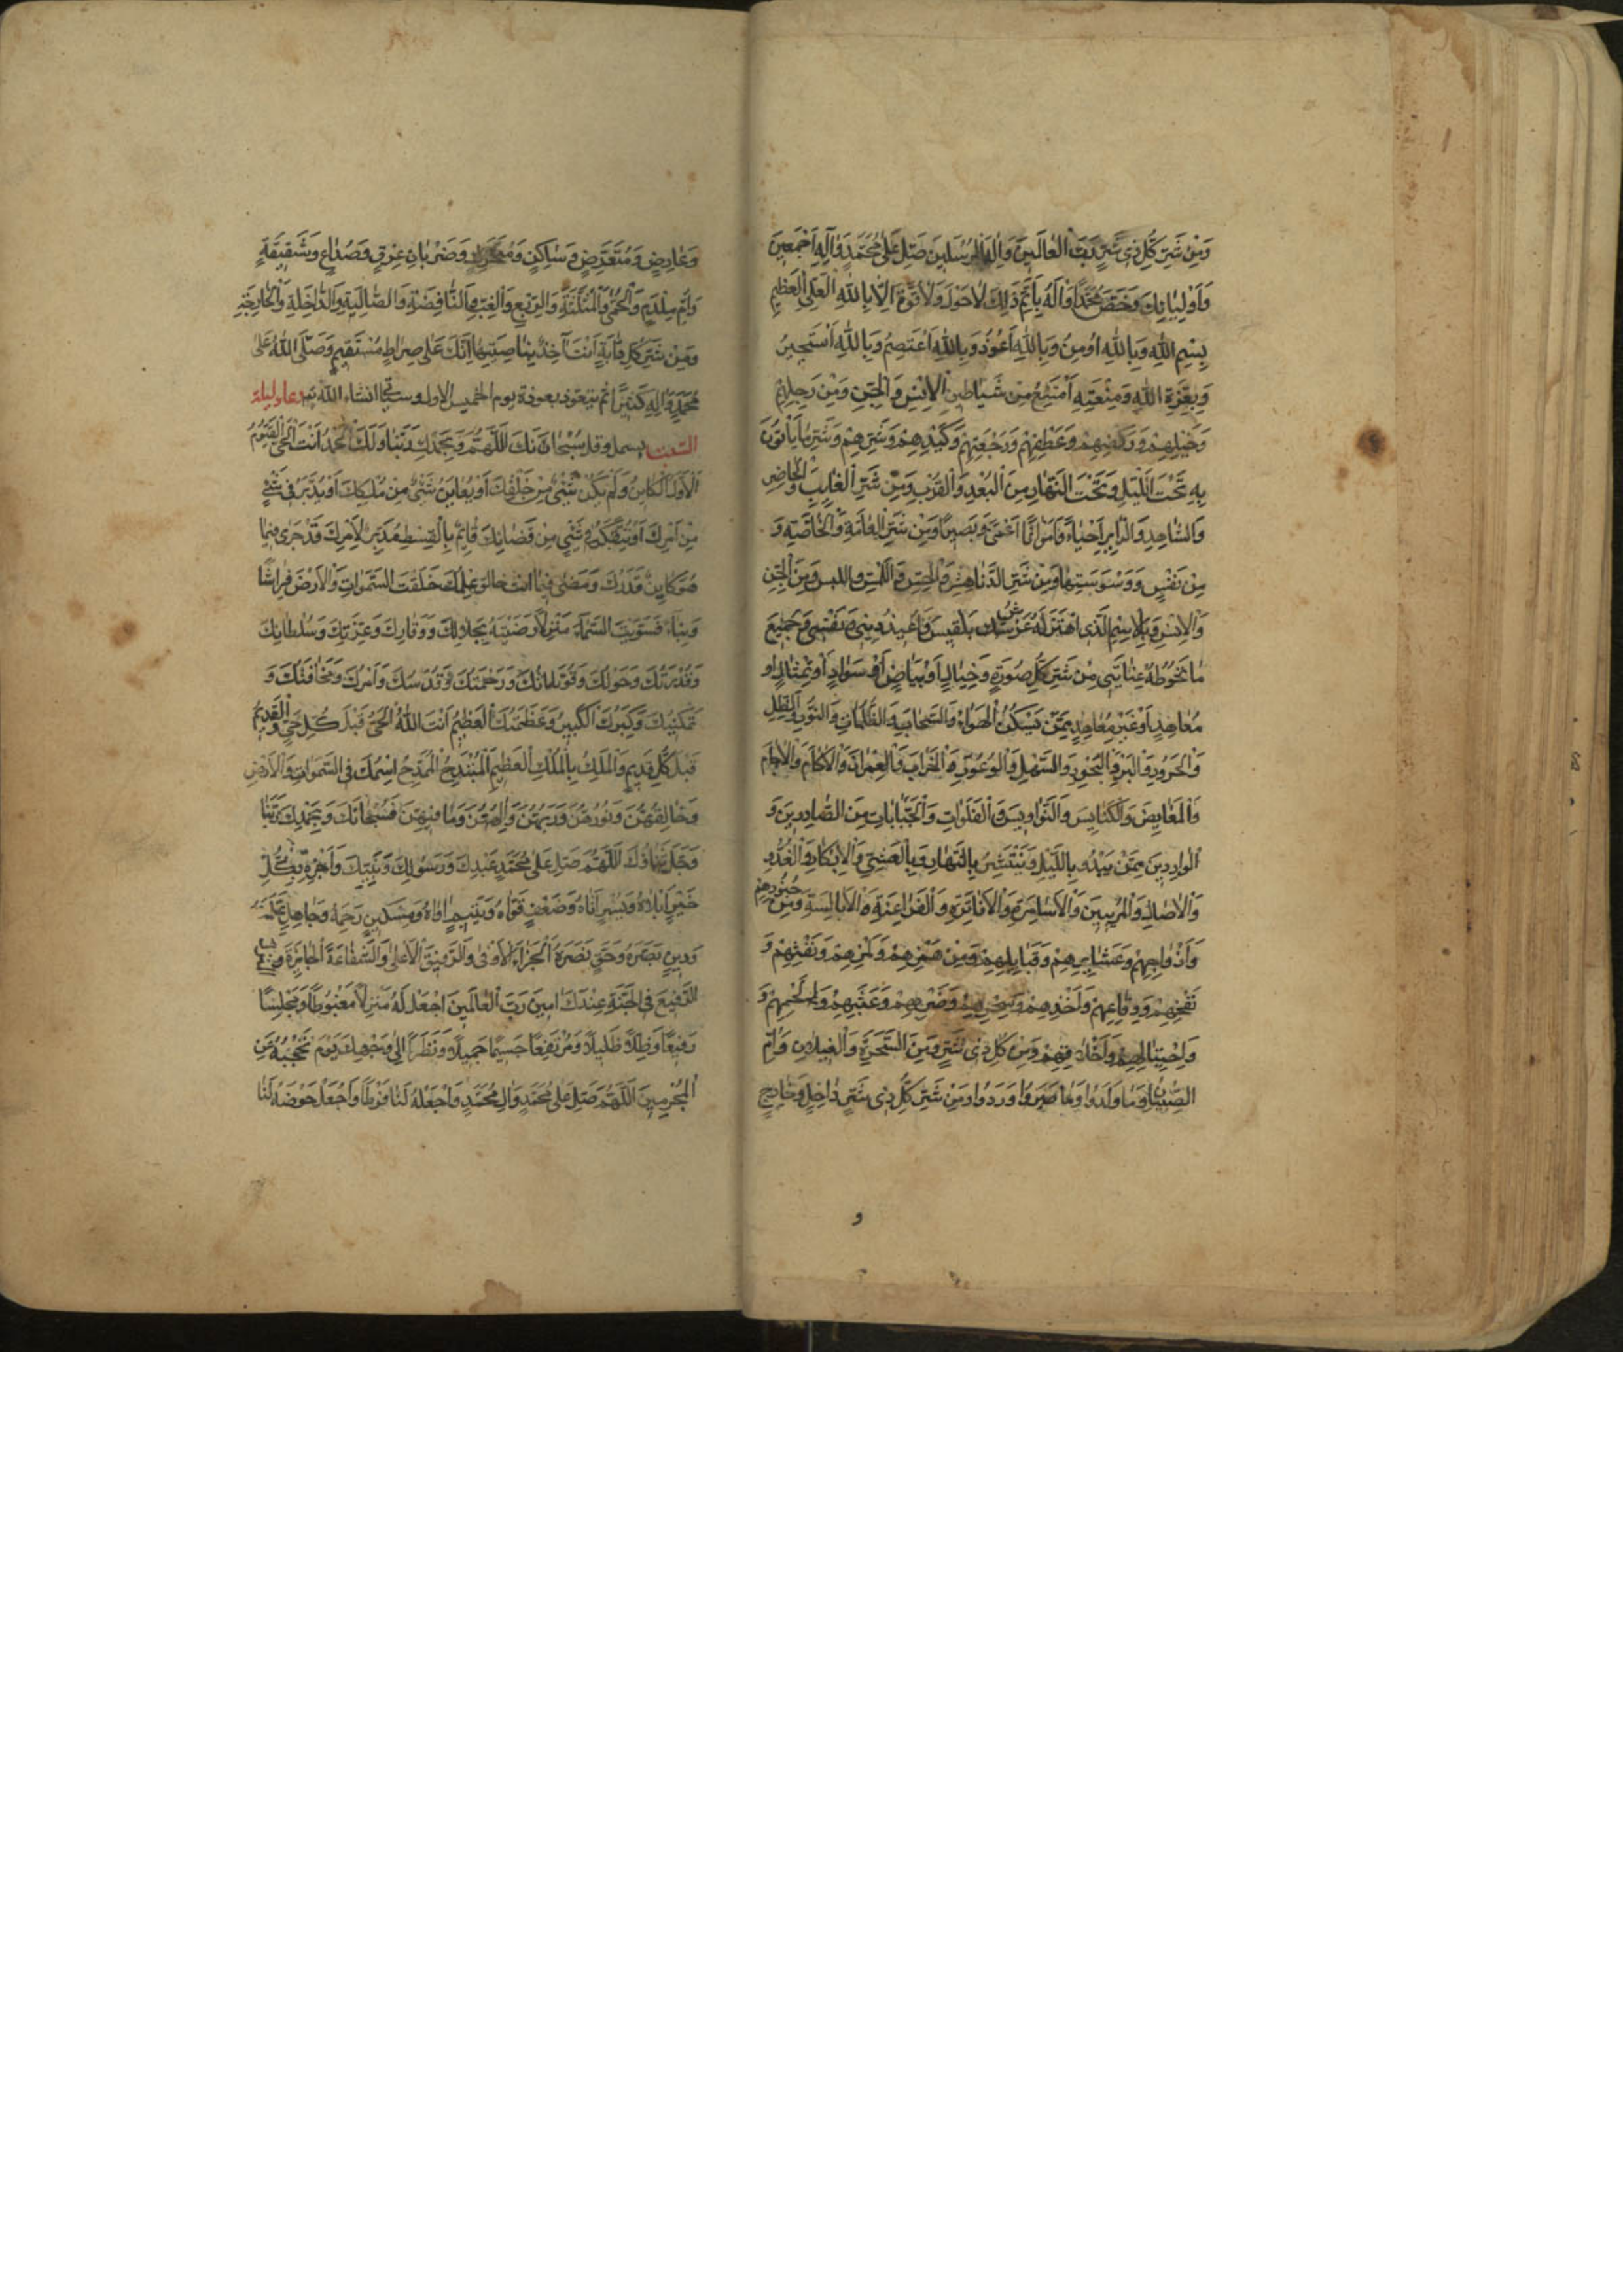 وَمِنْ شَرِّ كُلِّ ذِى شَرٍّ رَبَّ الْعَالَمِينَ وَاِلٰهَ الْمُرْسَلِينَ صَلِّ عَلىٰ مُحَمَّدٍ وَآلِهِ اَجْمَعِينَ
وَاَوْلِيَائِكَ وَخُصَّ مُحَمَّدًا وَآلَهُ بِاَتَمِّ ذٰلِكَ لاٰحَوْلَ وَلاٰ قُوَّةَ اِلّاٰ بِاللّٰهِ الْعَلِىِّ الْعَظِيمِ
بِسْمِ اللّٰهِ وَبِاللّٰهِ اُومِنُ وَبِاللّٰهِ اَعُوذُ وَبِاللّٰهِ اَعْتَصِمُ وَبِاللّٰهِ اَسْتَجِيرُ
وَبِعِزَّةِ اللّٰهِ وَمِنْعَتِهِ اَمْتَنِعُ مِنْ شَيَاطِينِ الْاِنْسِ وَالْجِنِّ وَمِنْ رَجِلِهِمْ
وَخَيْلِهِمْ وَرَكْضِهِمْ وَعَطْفِهِمْ وَرَجْعَتِهِمْ وَكَيْدِهِمْ وَشَرِّهِمْ وَشَرِّ مٰا يَأْتُونَ
بِهِ تَحْتَ اللَّيْلِ وَتَحْتَ النَّهَارِ مِنَ الْبُعْدِ وَالْقُرْبِ وَمِنْ شَرِّ الْغَايِبِ وَالْحَاضِرِ
وَالشَّاهِدِ وَالزَّايِرِ اَحْيَاءً وَاَمْوَاتًا اَعْمىٰ وَبَصِيرًا وَمِنْ شَرِّ الْعٰامَّةِ وَالْخٰاصَّةِ وَ
مِنْ نَفْسٍ وَوَسْوَسَتِهٰا وَمِنْ شَرِّ الدَّنَاهِشِ وَالْحِسِّ وَاللَّمْسِ واللبس وَمِنَ الْجِنِّ
وَالْاِنْسِ وَبِالْاِسْمِ الَّذِى اهْتَزَّ لَهُ عَرْشُ بِلْقِيسَ وَاُعِيذُ دِينِى وَنَفْسِى وَجَمِيعَ
مٰا تَحُوطُهُ عِنَايَتِى مِنْ شَرِّ كُلِّ صُورَةٍ وَخِيَالٍ اَوْ بَيَاضٍ اَوْ سَوَادٍ اَوْ تِمْثَالٍ اَوْ
مُعَاهِدٍ اَوْ غَيْرِ مُعَاهِدٍ مِمَّنْ يَسْكُنُ الْهَوَاءَ وَالسَّحَابَ وَالظُّلُمَاتِ وَالنُّورَ وَالظِّلَّ
وَالْحَرُورَ وَالْبَرَّ وَالْبُحُورَ وَالسَّهْلَ وَالْوُعُورَ وَالْخَرَابَ وَالْعِمْرَانَ وَالْآكَامَ وَالْآجَامَ
وَالْمَغَايِضَ وَالْكَنَايِسَ وَالنَّوَاوِيسَ وَالْفَلَوَاتِ وَالْجَبَّانَاتِ مِنَ الصَّادِرِينَ وَ
الْوَارِدِينَ مِمَّنْ يَبْدُو بِاللَّيْلِ وَيَنْتَشِرُ بِالنَّهَارِ وَبِالْعَشِىِّ وَالْاِبْكَارِ وَالْغُدُوِّ
وَالْاٰصَالِ وَالْمُرِيبِينَ وَالْاَسَامِرَةِ وَالْاَفَاتِرَةِ وَالْفَرَاعِنَةِ وَالْاَبَالِسَةِ وَمِنْ جُنُودِهِمْ
وَاَزْوَاجِهِمْ وَعَشَايِرِهِمْ وَقَبَايِلِهِمْ وَمِنْ هَمْزِهِمْ وَلَمْزِهِمْ وَنَفْثِهِمْ وَ
نَفْخِهِمْ وَوِقَاعِهِمْ وَاَخْذِهِمْ وَسِحْرِهِمْ وَضَرْبِهِمْ وَعَبَثِهِمْ وَلَمْحِهِمْ وَ
وَاحْتِيَالِهِمْ وَاَخْلَاقِهِمْ وَمِنْ كُلِّ ذِى شَرٍّ وَمِنَ السَّحَرَةِ وَالْغِيلَانِ وَاُمِّ
الصِّبْيَانِ وَمٰا وَلَدُوا وَمٰا وَرَدُوا وَمِنْ شَرِّ كُلِّ ذِى شَرٍّ دٰاخِلٍ وَخٰارِجٍ
و
وَعَارِضٍ وَمُتَعَرِّضٍ وَسَاكِنٍ وَمُتَحَرِّكٍ وَضَرَبَانِ عِرْقٍ وَصُدَاعٍ وَشَقِيقَةٍ
وَاُمِّ مِلْدَمٍ وَالْحُمّىٰ وَالْمُثَلَّثَةِ وَالرِّبْعِ وَالْغِبِّ وَالنَّافِضَةِ وَالصَّالِبَةِ وَالدَّاخِلَةِ وَالْخَارِجَةِ
وَمِنْ شَرِّ كُلِّ دَابَّةٍ اَنْتَ آخِذٌ بِنَاصِيَتِهَا اِنَّكَ عَلىٰ صِرَاطٍ مُسْتَقِيمٍ وَصَلَّى اللّٰهُ عَلىٰ
مُحَمَّدٍ وَآلِهِ كَثِيرًا ثم يتعوذ بعوذة يوم الخميس الاول وستجئ انشاء اللّٰه تم دعاء ليلة
السبت بسمل وقل سُبْحَانَكَ اللّٰهُمَّ وَبِحَمْدِكَ رَبَّنَا وَلَكَ الْحَمْدُ اَنْتَ الْحَىُّ الْقَيُّومُ
الْاَوَّلُ الْكَايِنُ وَلَمْ يَكُنْ شَىْءٌ مِنْ خَلْقِكَ اَوْ يُعَايِنُ شَىْءٌ مِنْ مُلْكِكَ اَوْ يُدَبَّرُ فِى شَىْءٍ
مِنْ اَمْرِكَ اَوْ يُتَفَكَّرُ فِى شَىْءٍ مِنْ قَضَائِكَ قَائِمٌ بِالْقِسْطِ مُدَبِّرٌ لِاَمْرِكَ قَدْ جَرىٰ فِيمَا
هُوَ كَايِنٌ قَدَرُكَ وَمَضىٰ فِيمَا انت خالق عِلْمُكَ خَلَقْتَ السَّمٰوَاتِ وَالْاَرْضَ فِرَاشًا
وَبِنَاءً فَسَوَّيْتَ السَّمَاءَ مَنْزِلًا رَضِيتَهُ بِجَلَالِكَ وَوَقَارِكَ وَعِزَّتِكَ وَسُلْطَانِكَ
وَقُدْرَتُكَ وَحَوْلُكَ وَقُوَّتُكَ وَرَحْمَتُكَ وَقُدْسُكَ وَاَمْرُكَ وَمَخَافَتُكَ وَ
تَمْكِينُكَ وَكِبْرُكَ الْكَبِيرُ وَعَظَمَتُكَ الْعَظِيمُ اَنْتَ اللّٰهُ الْحَىُّ قَبْلَ كُلِّ حَىٍّ وَالْقَدِيمُ
قَبْلَ كُلِّ قَدِيمٍ وَالْمَلِكُ بِالْمُلْكِ الْعَظِيمِ الْمُمْتَدِحُ الْمُمَدَّحُ اسْمُكَ فِى السَّمٰوَاتِ وَالْاَرْضِ
وَخَالِقُهُنَّ وَنُورُهُنَّ وَرَبُّهُنَّ وَاِلٰهُهُنَّ وَمَا فِيهِنَّ فَسُبْحَانَكَ وَبِحَمْدِكَ رَبَّنَا
وَجَلَّ ثَنَاؤُكَ اللّٰهُمَّ صَلِّ عَلىٰ مُحَمَّدٍ عَبْدِكَ وَرَسُولِكَ وَنَبِيِّكَ وَاَجْزِهِ بِكُلِّ
خَيْرٍ اَبْلَاهُ وَيُسْرٍ اَتَاهُ وَضَعْفٍ قَوَّاهُ وَيَتِيمٍ اٰوَاهُ وَمِسْكِينٍ رَحِمَهُ وَجَاهِلٍ عَلَّمَهُ
وَدِينٍ نَصَرَهُ وَحَقٍّ نَصَرَهُ الْجَزَاءَ الْاَوْفىٰ وَالرَّفِيقَ الْاَعْلىٰ وَالشَّفَاعَةَ الْجَائِزَةَ
الرَّفِيعَ فِى الْجَنَّةِ عِنْدَكَ امِينَ رَبَّ الْعَالَمِينَ اجْعَلْ لَهُ مَنْزِلًا مَغْبُوطًا وَمَجْلِسًا
رَفِيعًا وَظِلًّا ظَلِيلًا وَمُرْتَفَعًا جَسِيمًا جَمِيلًا وَنَظَرًا اِلىٰ وَجْهِكَ يَوْمَ تَحْجُبُهُ عَنِ
الْمُجْرِمِينَ اللّٰهُمَّ صَلِّ عَلىٰ مُحَمَّدٍ وَالِ مُحَمَّدٍ وَاجْعَلْهُ لَنَا فَرَطًا وَاجْعَلْ حَوْضَهُ لَنَا